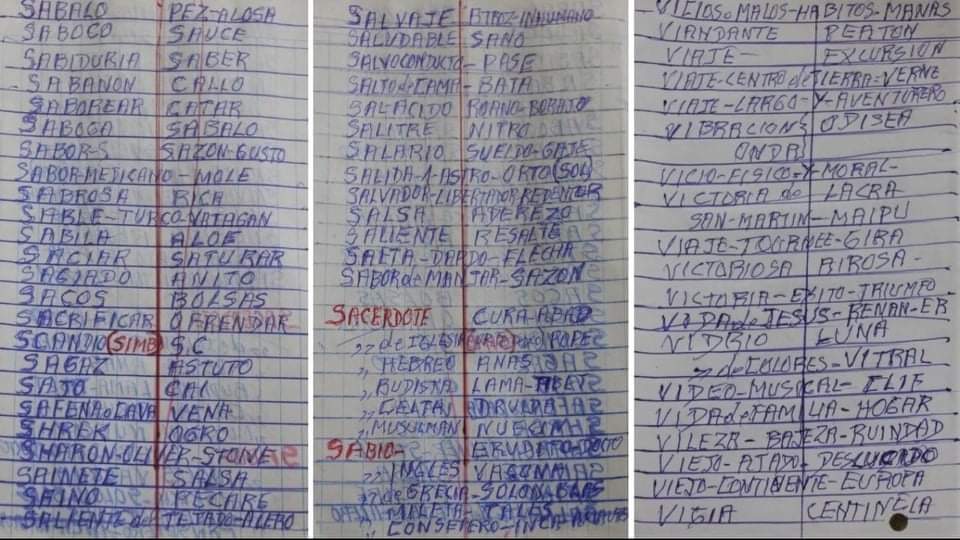 SABALO PEZ-ALOSA
SABOCO SAUCE
SABIDURIA SABER
SABANON CALLO
SABOREAR CATAR
SABOGA SABALO
SABOR-S SAZON-GUSTO
SABOR-MEDICANO-MOLE
SABROSA RICA
SABLE-TURCO YATAGAN
SABILA ALOE
SACIAR SATURAR
SAGIADO ANITO
SACOS BOLSAS
SACRIFICAR OFRENDAR
SCANDIO (SIMB) S.C
SAGAZ ASTUTO
SAJO CAI
SAFENA o CAVA VENA
SHREK OGRO
SHARON-OLIVER-STONE
SAINETE SALSA
SAINO PECARE
SALIENTE del TEJADO-ALERO
SALVAJE ATROZ-INHUMANO
SALUDABLE SANO
SALVOCONDUCTO-PASE
SALTO de CAMA-BATA
SALACIDO ROANO-BORAJO
SALITRE NITRO
SALARIO SUELDO-GAJE
SALIDA-1-ASTRO-ORTO (SOL)
SALVADOR-LIBERTADOR REDENTOR
SALSA ADEREZO
SALIENTE RESALTE
SAETA-DARDO-FLECHA
SABOR de MANJAR-SAZON
SACERDOTE CURA-ABAD
,, de IGLESIA POPE
,, HEBREO ANAS
,, BUDISTA LAMA
,, CELTA DRUIDA
,, MUSULMAN
SABIO- ERUDITO-DOCTO
,, INGLES
,, de GRECIA-SOLON-BIAS
,, MILETA-TALES
,, CONSEJERO-INCA
VICIOS o MALOS-HABITOS-MAÑAS
VIANDANTE PEATON
VIAJE- EXCURSION
VIAJE-CENTRO de TIERRA=VERNE
VIAJE-LARGO-Y-AVENTURERO
VIBRACION ODISEA
ONDA
VICIO-FISICO-Y-MORAL-
VICTORIA de LACRA-
SAN-MARTIN-MAIPU
VIAJE-TOURNEE-GIRA
VICTORIOSA AIROSA-
VICTORIA-EXITO-TRIUMFO
VIDA de JESUS-RENAN-ER
VIDRIO LUNA
,, de COLORES-VITRAL
VIDEO-MUSICAL-CLIP
VIDA de FAMILIA-HOGAR
VILEZA-BAJEZA-RUINDAD
VIEJO-AJADO-DESLUCIDO
VIEJO-CONTINENTE-EUROPA
VIGIA CENTINELA